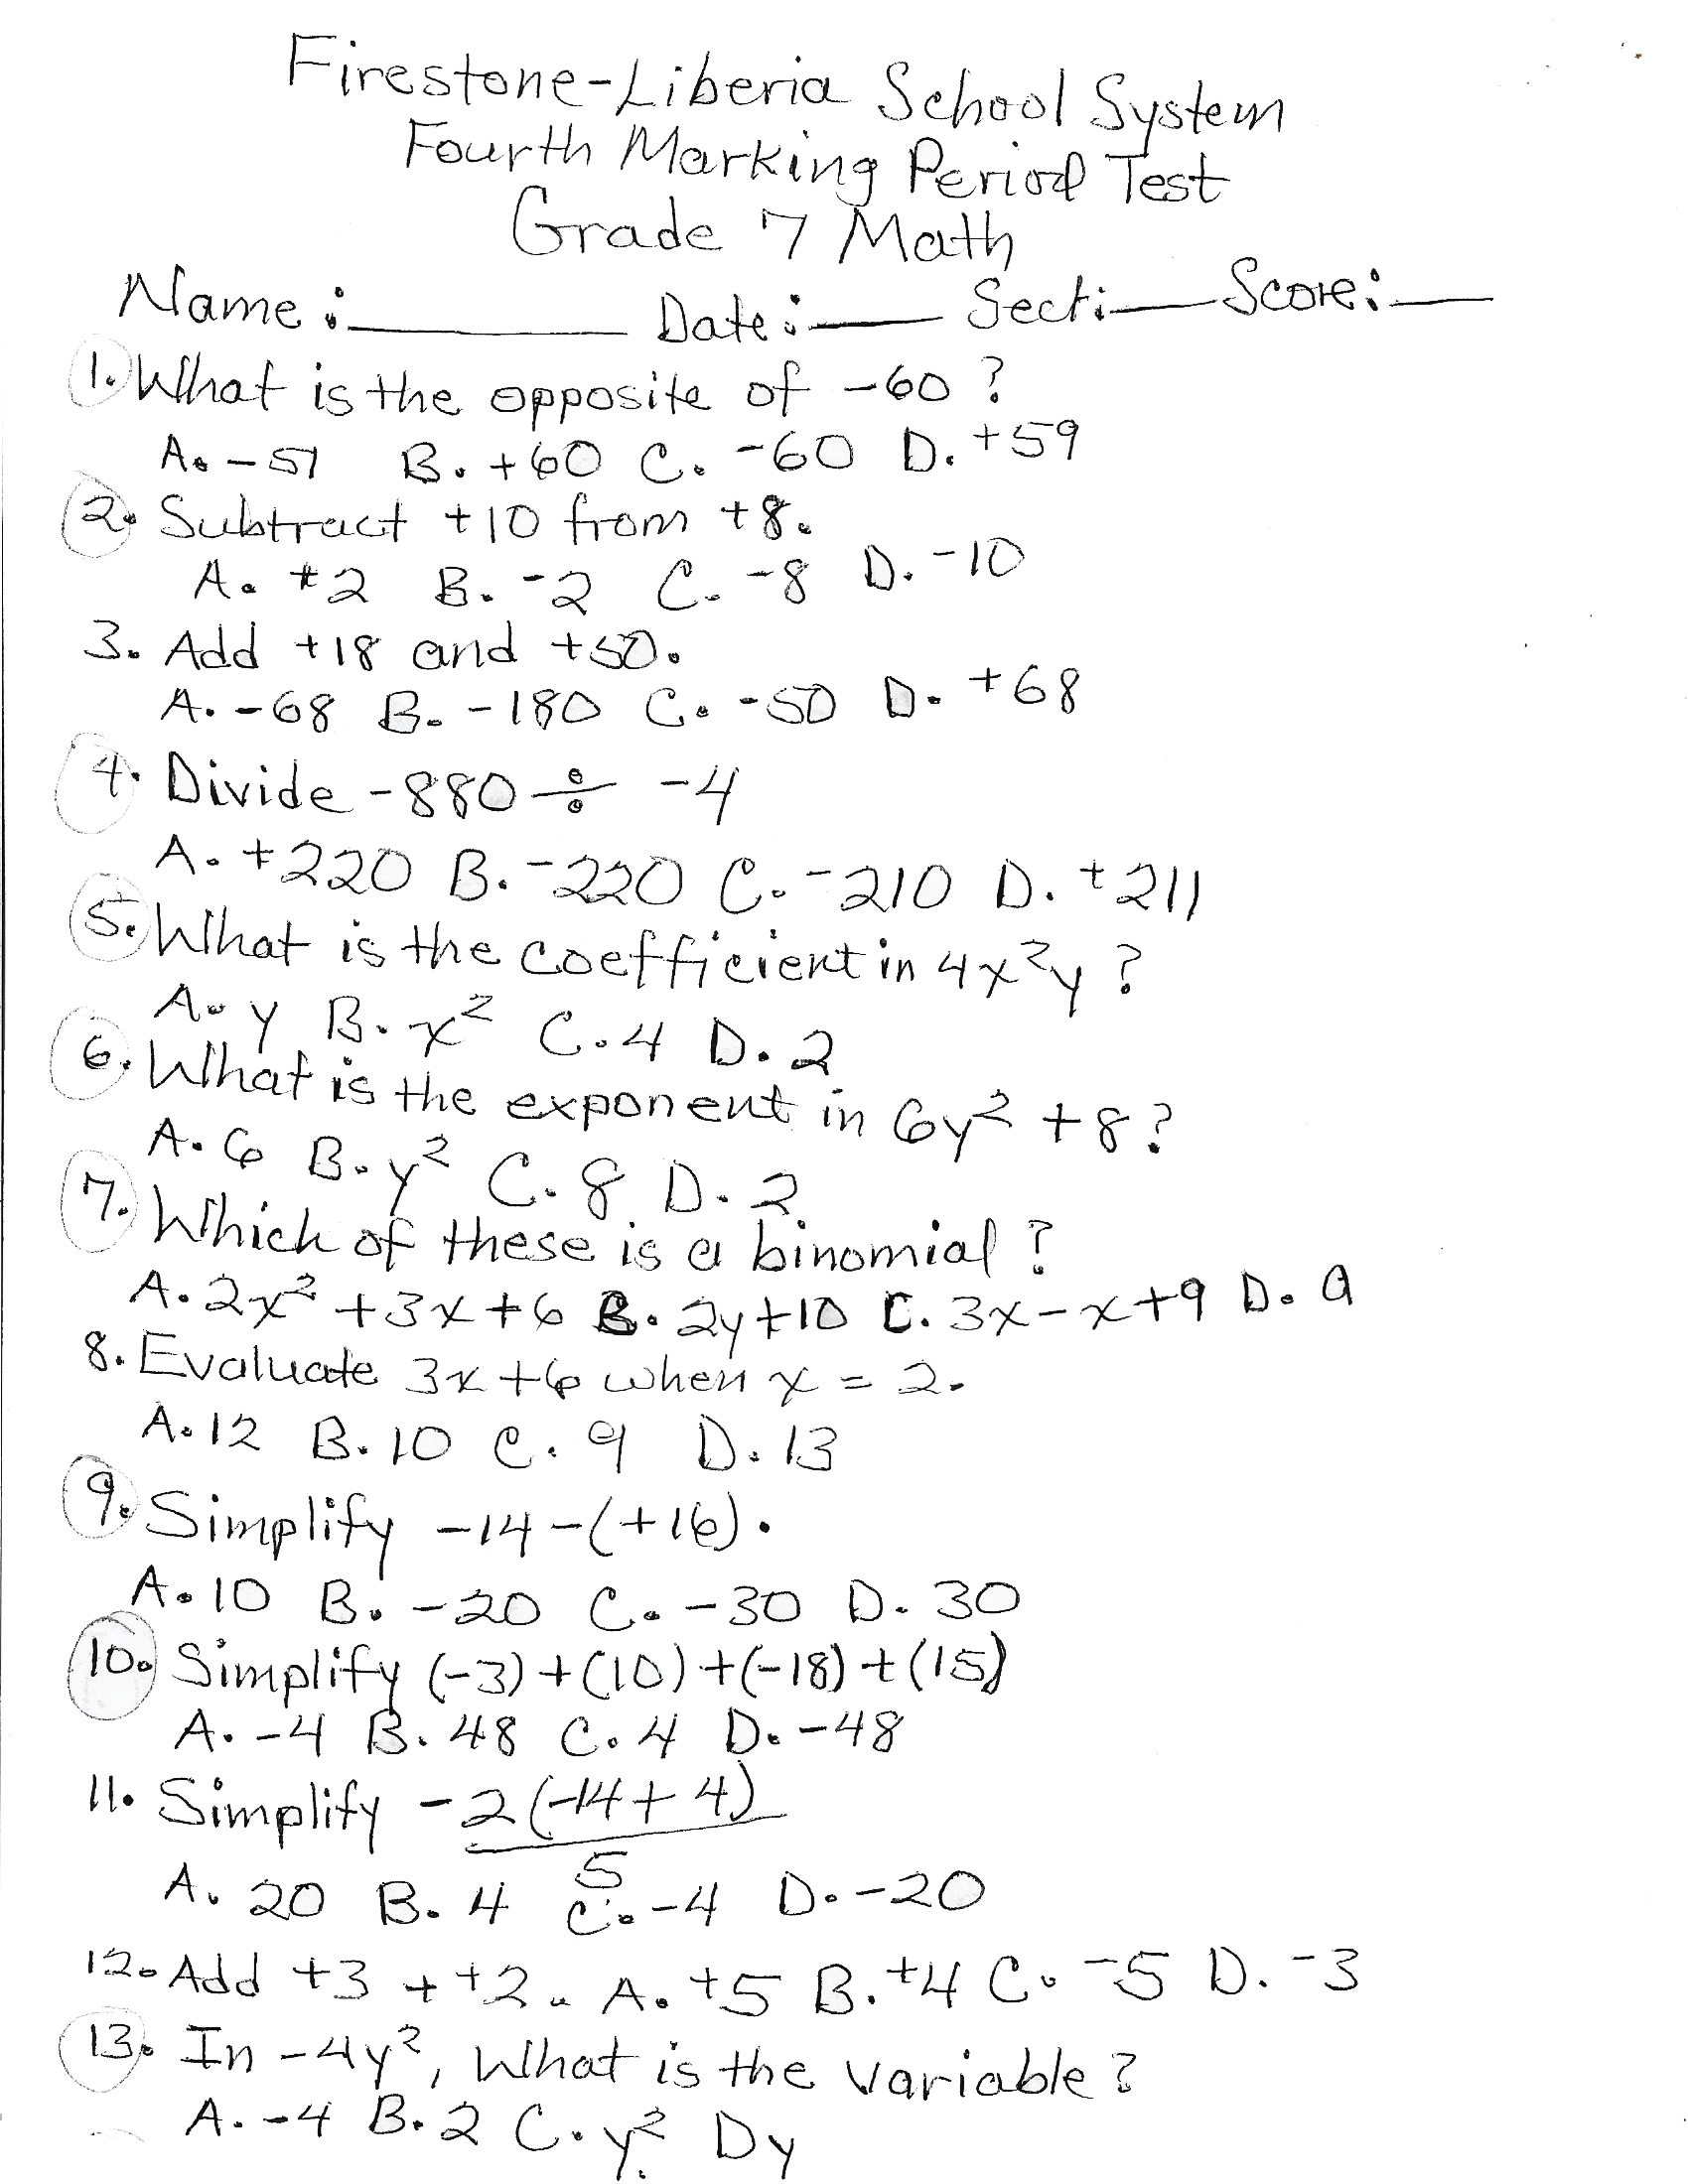 Firestone-Liberia School System
Fourth Marking Period Test
Grade 7 Math
Name:______ Date:____ Sect:____ Score:____
1. What is the opposite of -60?
A. -51 B. +60 C. -60 D. +59
2. Subtract +10 from +8.
A. +2 B. -2 C. -8 D. -10
3. Add +18 and +50.
A. -68 B. -180 C. -50 D. +68
4. Divide -880 ÷ -4
A. +220 B. -220 C. -210 D. +211
5. What is the coefficient in 4x²y?
A. y B. x² C. 4 D. 2
6. What is the exponent in 6y² + 8?
A. 6 B. y² C. 8 D. 2
7. Which of these is a binomial?
A. 2x² + 3x + 6 B. 2y + 10 C. 3x - x + 9 D. 9
8. Evaluate 3x + 6 when x = 2.
A. 12 B. 10 C. 9 D. 13
9. Simplify -14 - (+16).
A. 10 B. -20 C. -30 D. 30
10. Simplify (-3) + (10) + (-18) + (15)
A. -4 B. 48 C. 4 D. -48
11. Simplify -2(-14 + 4)
5
A. 20 B. 4 C. -4 D. -20
12. Add +3 + +2. A. +5 B. +4 C. -5 D. -3
13. In -4y², What is the variable?
A. -4 B. 2 C. y² D y